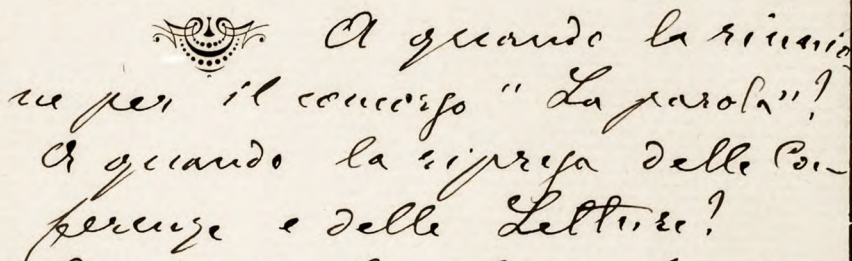 A quando la riunio-
ne per il concorso "La parola"?
A quando la ripresa delle Con-
ferenze e delle Letture?